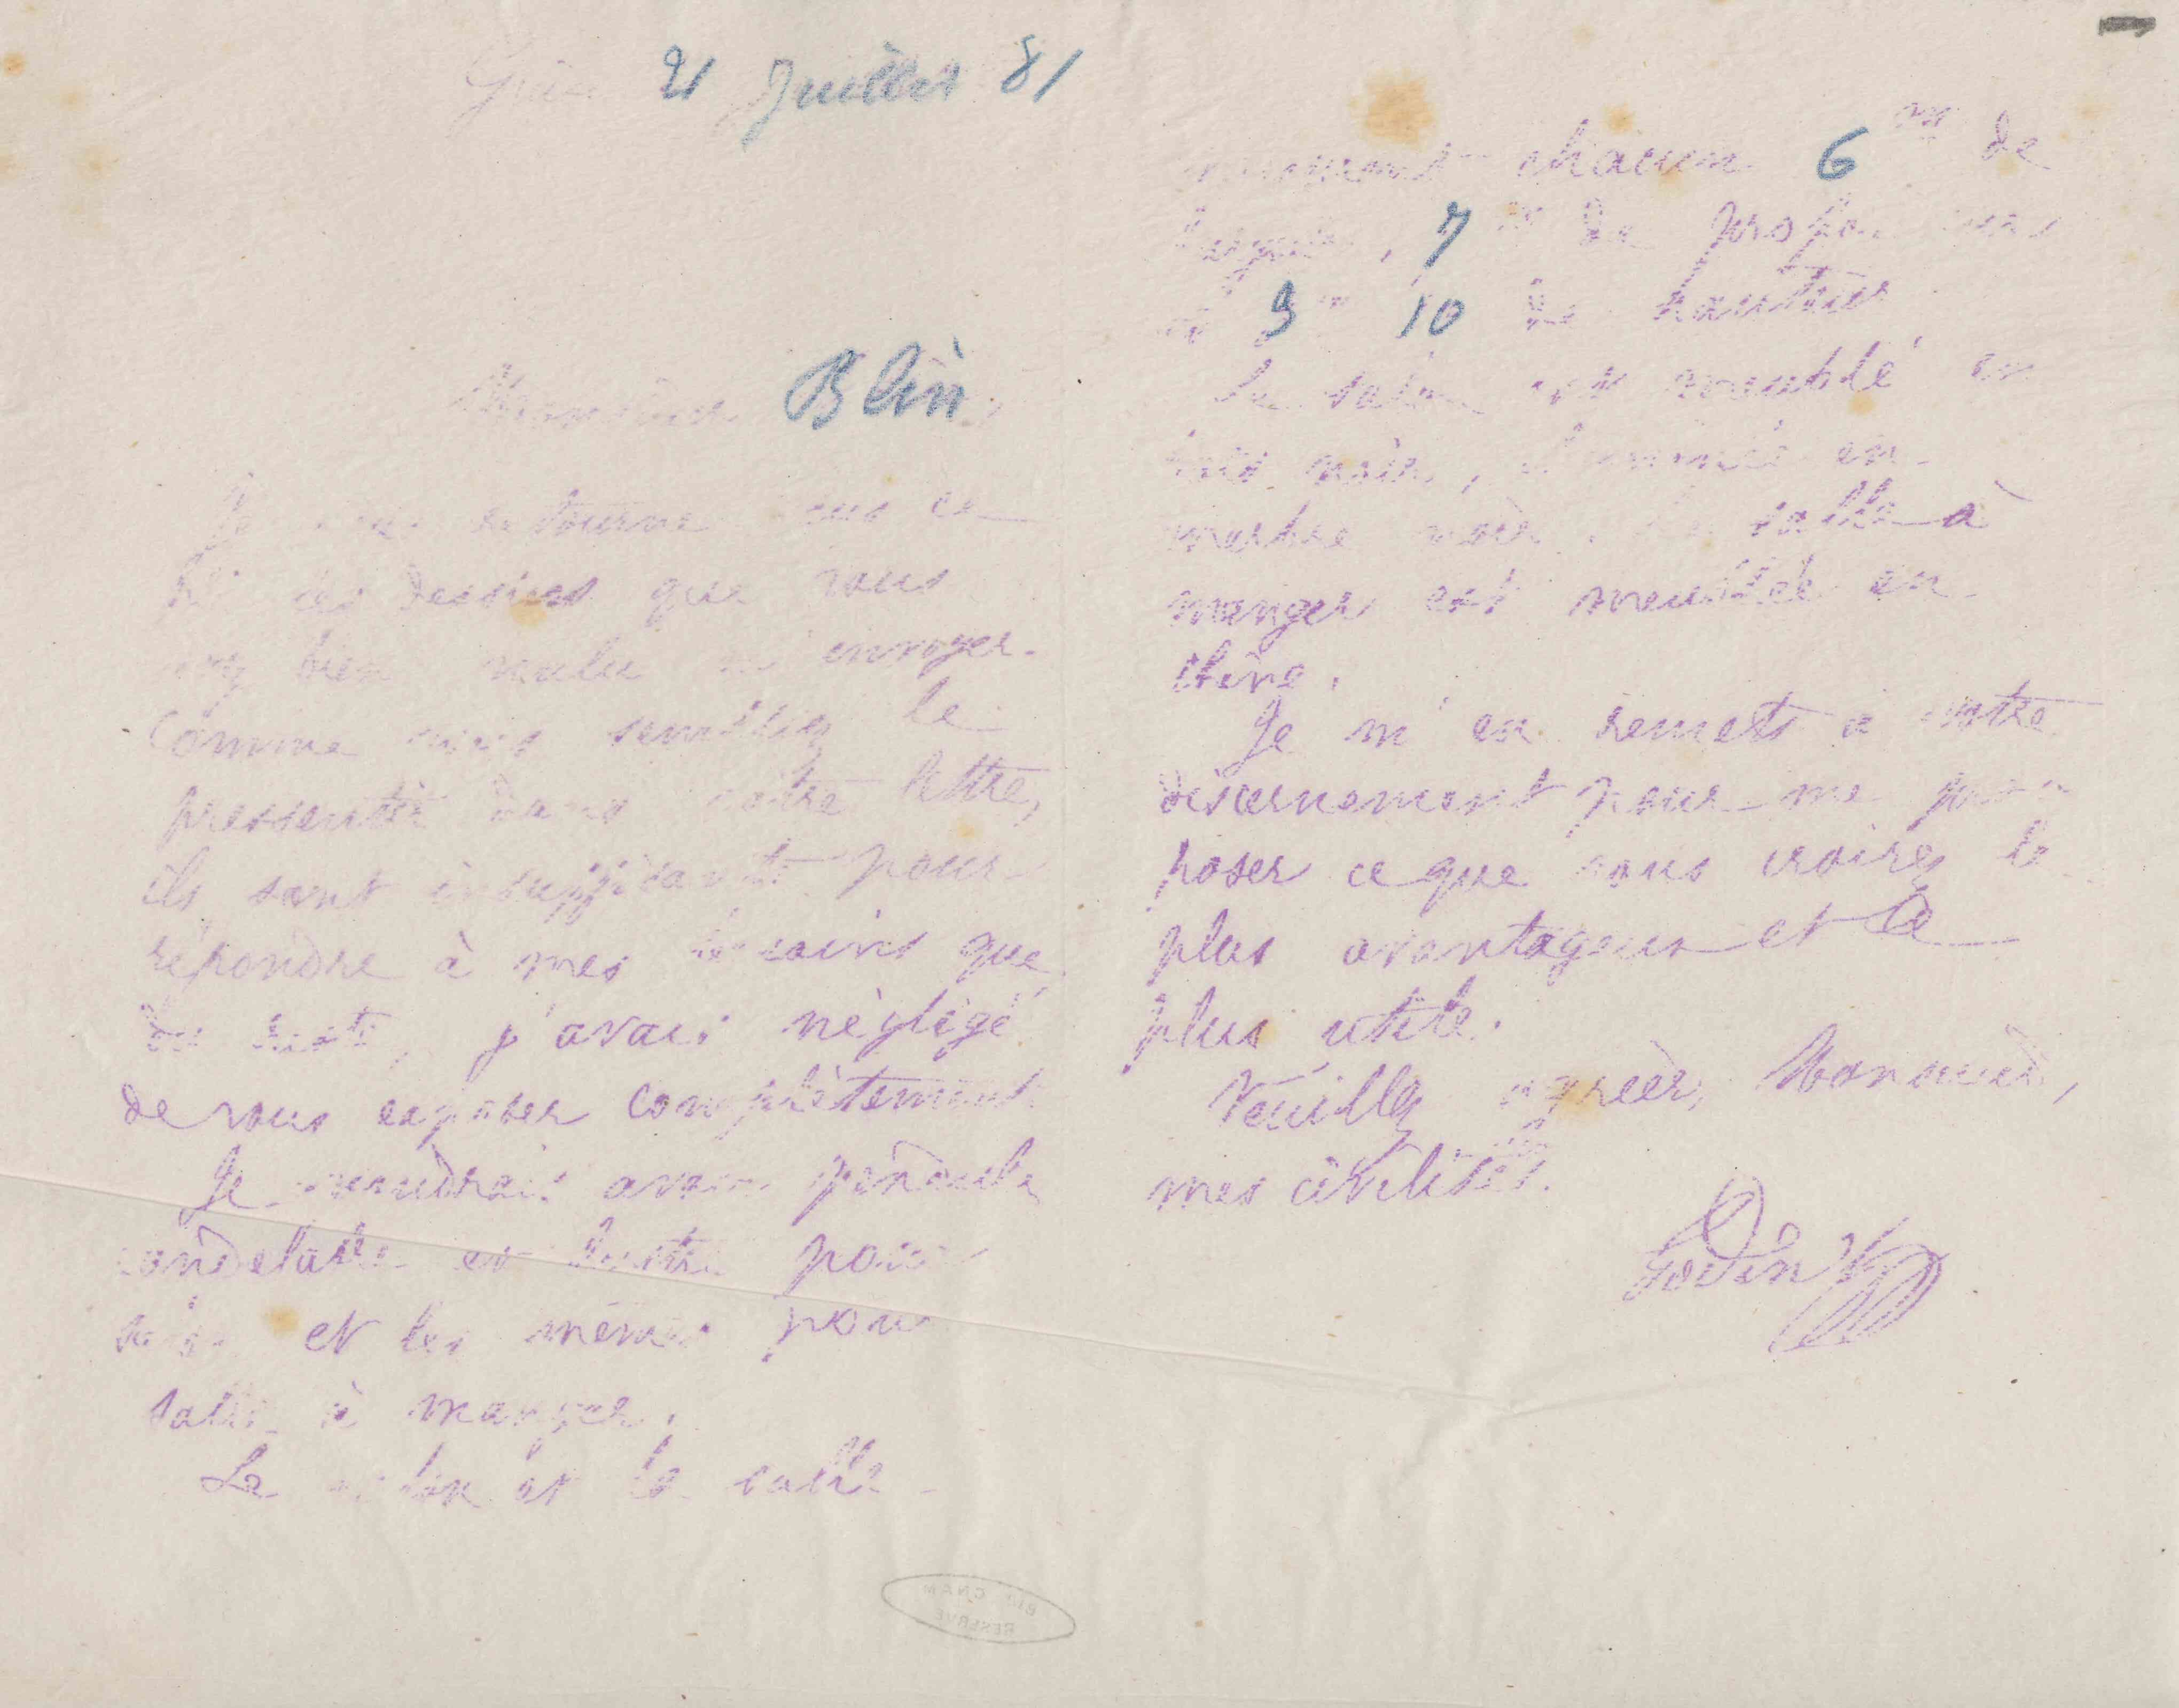 Guise 21 Juillet 81
Monsieur Blin,
Je vous retourne sous ce
pli les dessins que vous
avez bien voulu m'envoyer.
Comme vous sembliez le
pressentir dans votre lettre,
ils sont insuffisants pour
répondre à mes besoins que
j'avais négligé
de vous exposer complètement
Je voudrais avoir pendule
candelabre et lustre pour
salon et les mêmes pour
salle à manger.
Le salon et la salle
mesurent chacun 6 m de
largeur, 7 m de profondeur
et 3 m 10 de hauteur
Le salon est meublé en
bois noir, cheminée en
marbre noir. La salle à
manger est meublée en
chêne.
Je m'en remets à votre
discernement pour me pro
poser ce que vous croirez le
plus avantageux et le
plus utile.
Veuillez agréer, Monsieur,
mes civilités.
Godin
BIB CNAM
RESERVE